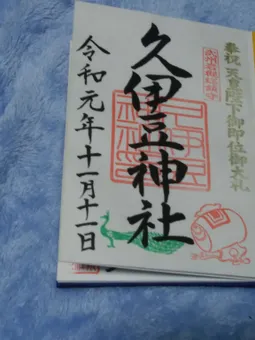 奉祝 天皇陛下御即位御大礼
久伊豆神社
令和元年十一月十一日